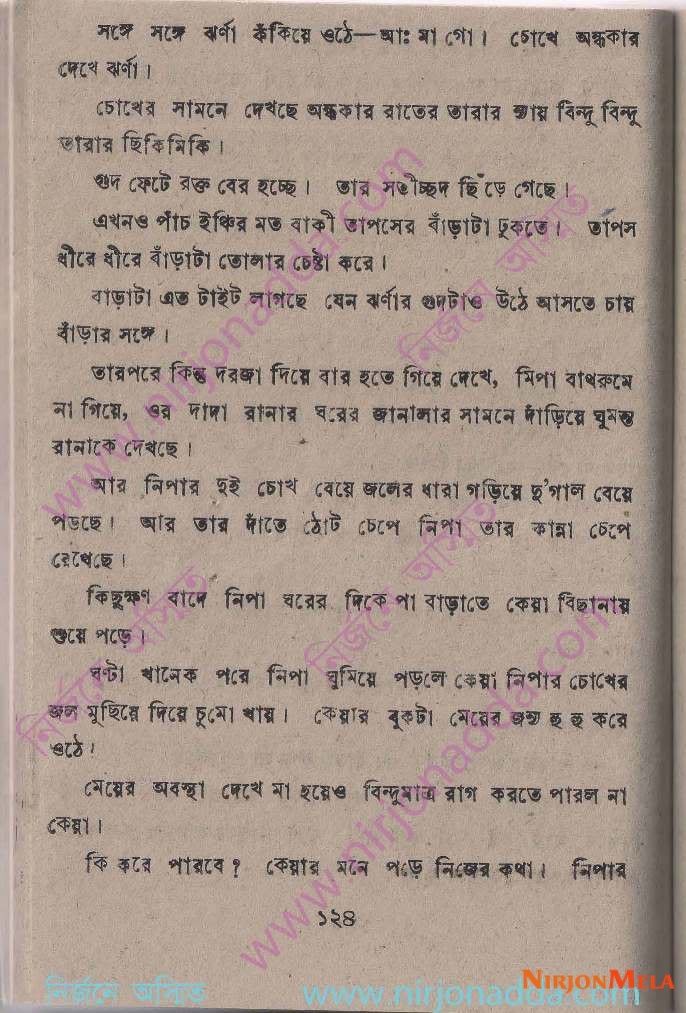 সঙ্গে সঙ্গে ঝর্ণা কঁকিয়ে ওঠে—আঃ মা গো। চোখে অন্ধকার
দেখে ঝর্ণা।
চোখের সামনে দেখছে অন্ধকার রাতের তারার ন্যায় বিন্দু বিন্দু
তারার ছিকিমিকি।
গুদ ফেটে রক্ত বের হচ্ছে। তার সতীচ্ছদ ছিঁড়ে গেছে।
এখনও পাঁচ ইঞ্চির মত বাকী তাপসের বাঁড়াটা ঢুকতে। তাপস
ধীরে ধীরে বাঁড়াটা তোলার চেষ্টা করে।
বাড়াটা এত টাইট লাগছে যেন ঝর্ণার গুদটাও উঠে আসতে চায়
বাঁড়ার সঙ্গে।
তারপরে কিন্তু দরজা দিয়ে বার হতে গিয়ে দেখে, নিপা বাথরুমে
না গিয়ে, ওর দাদা রানার ঘরের জানালার সামনে দাঁড়িয়ে ঘুমন্ত
রানাকে দেখছে।
আর নিপার দুই চোখ বেয়ে জলের ধারা গড়িয়ে দু'গাল বেয়ে
পড়ছে। আর তার দাঁতে ঠোট চেপে নিপা তার কান্না চেপে
রেখেছে।
কিছুক্ষণ বাদে নিপা ঘরের দিকে পা বাড়াতে কেয়া বিছানায়
শুয়ে পড়ে।
ঘণ্টা খানেক পরে নিপা ঘুমিয়ে পড়লে কেয়া নিপার চোখের
জল মুছিয়ে দিয়ে চুমো খায়। কেয়ার বুকটা মেয়ের জন্য হু হু করে
ওঠে।
মেয়ের অবস্থা দেখে মা হয়েও বিন্দুমাত্র রাগ করতে পারল না
কেয়া।
কি করে পারবে? কেয়ার মনে পড়ে নিজের কথা। নিপার
১২৪
www.nirjonadda.com
নির্জনে অস্মিত
নির্জনে অস্মিত
নির্জনে অস্মিত
www.nirjonadda.com
নির্জনে অস্মিত www.nirjonadda.com
NIRJONMELA